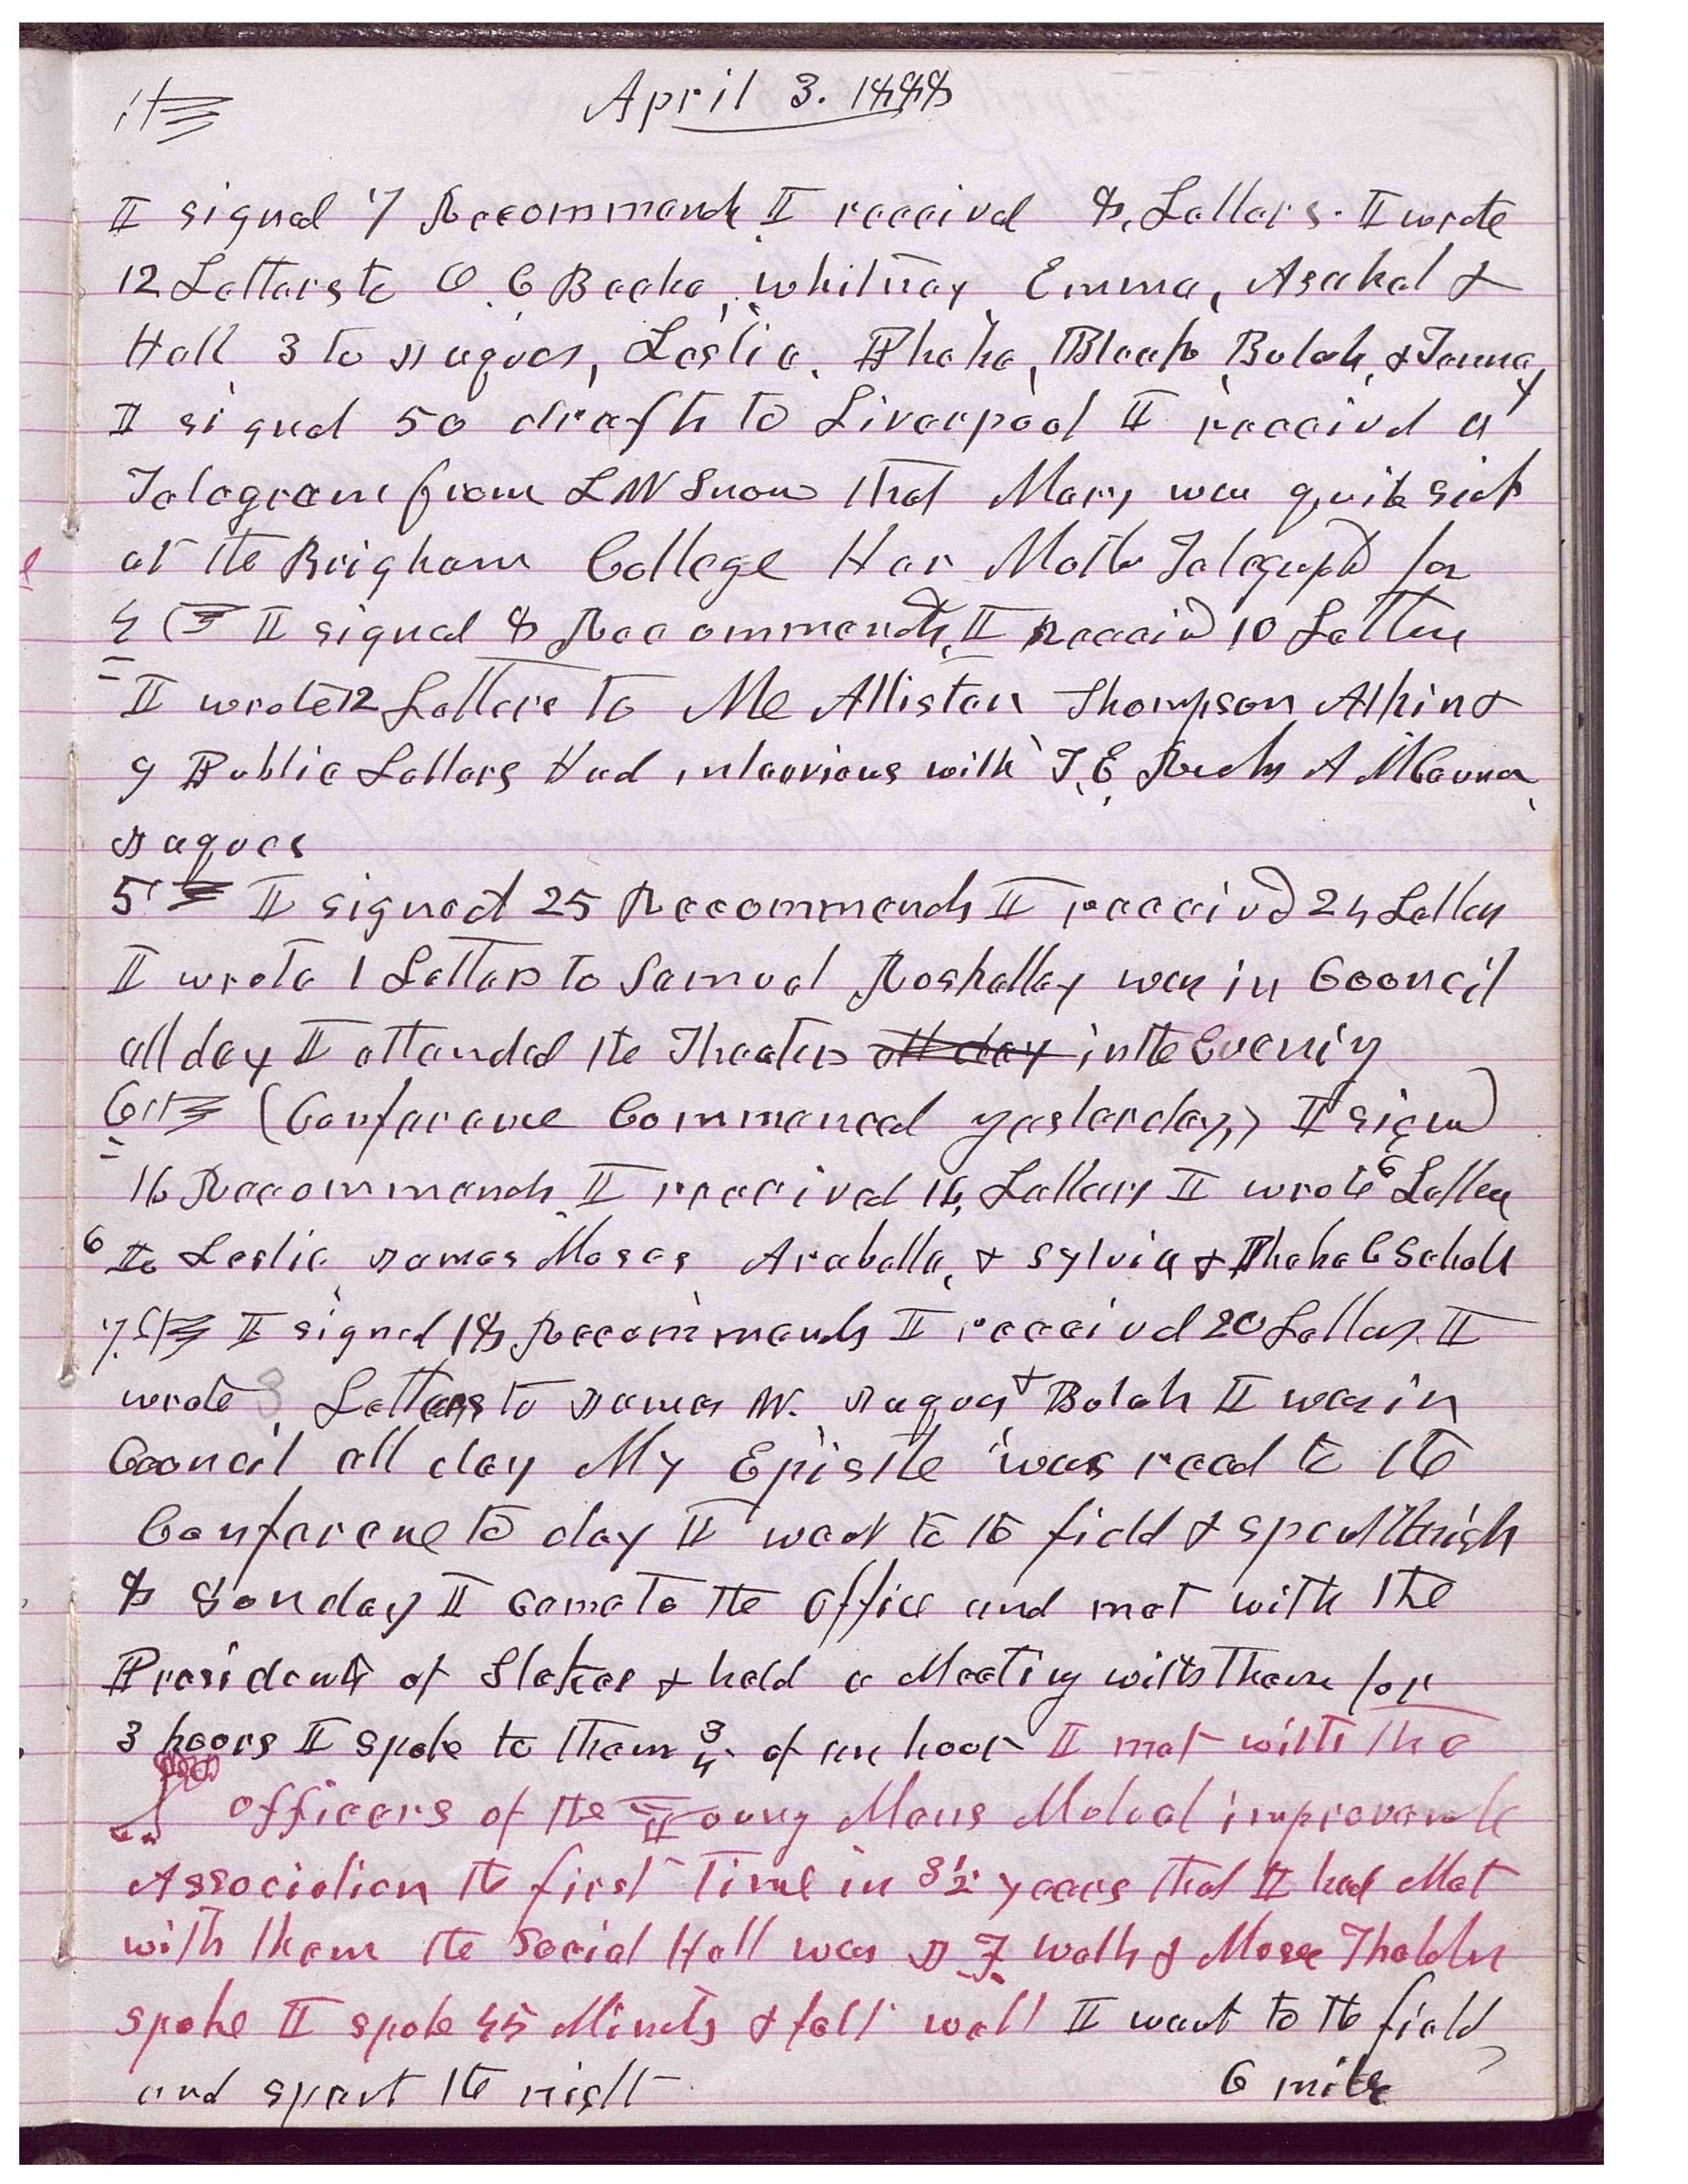 April 3. 1888
I signed 7 Recommends I received 8, Letters. I wrote
12 Letters to O C Beebe, Whitney Emma, Asahel &
Hall 3 to Jaques, Leslie, Phebe, Bleak Bulah, & Jenney
I signed 50 drafts to Liverpool I receivd a
Telegram from L W Snow that Mary was quite sick
at the Brigham College Her Mother Telegraphd for
4th I signed 8 Recommends, I Receivd 10 Letters
I wrote 12 Letters to Me Allister Thompson Atkin &
9 Public Letters Had interviews with T. E. Ricks A M Cannon
Jaques
5th I signed 25 Recommends I received 24 Letters
I wrote 1 Letter to Samuel Roskelley was in Council
all day I attended the Theater all day in the Evening
6th (Conference Commenced yesterday,) I signed
16 Recommends I received 16, Letters I wrote 6 Letters
6 to Leslie James Moses Arabella, & Sylvia & Phebe C Scholl
7th I signed 18 Recommends I received 20 Letters. I
wrote 3 Letters to James W. Jaques & Bulah I was in
Council all day My Epistle was read to the
Conference to day I went to the field & spent the night
8 Sunday I came to the office and met with the
Presidents of Stakes & held a Meeting with them for
3 hours I spoke to them 3/4 of an hour I met with the
officers of the Young Mens Mutual improvemnt
Association the first Time in 3 1/2 years that I had Met
with them the Social Hall was J. F. Wells & Moses Thatcher
spoke I spoke 45 Minuts & felt well I went to the field
and spent the night 6 mile